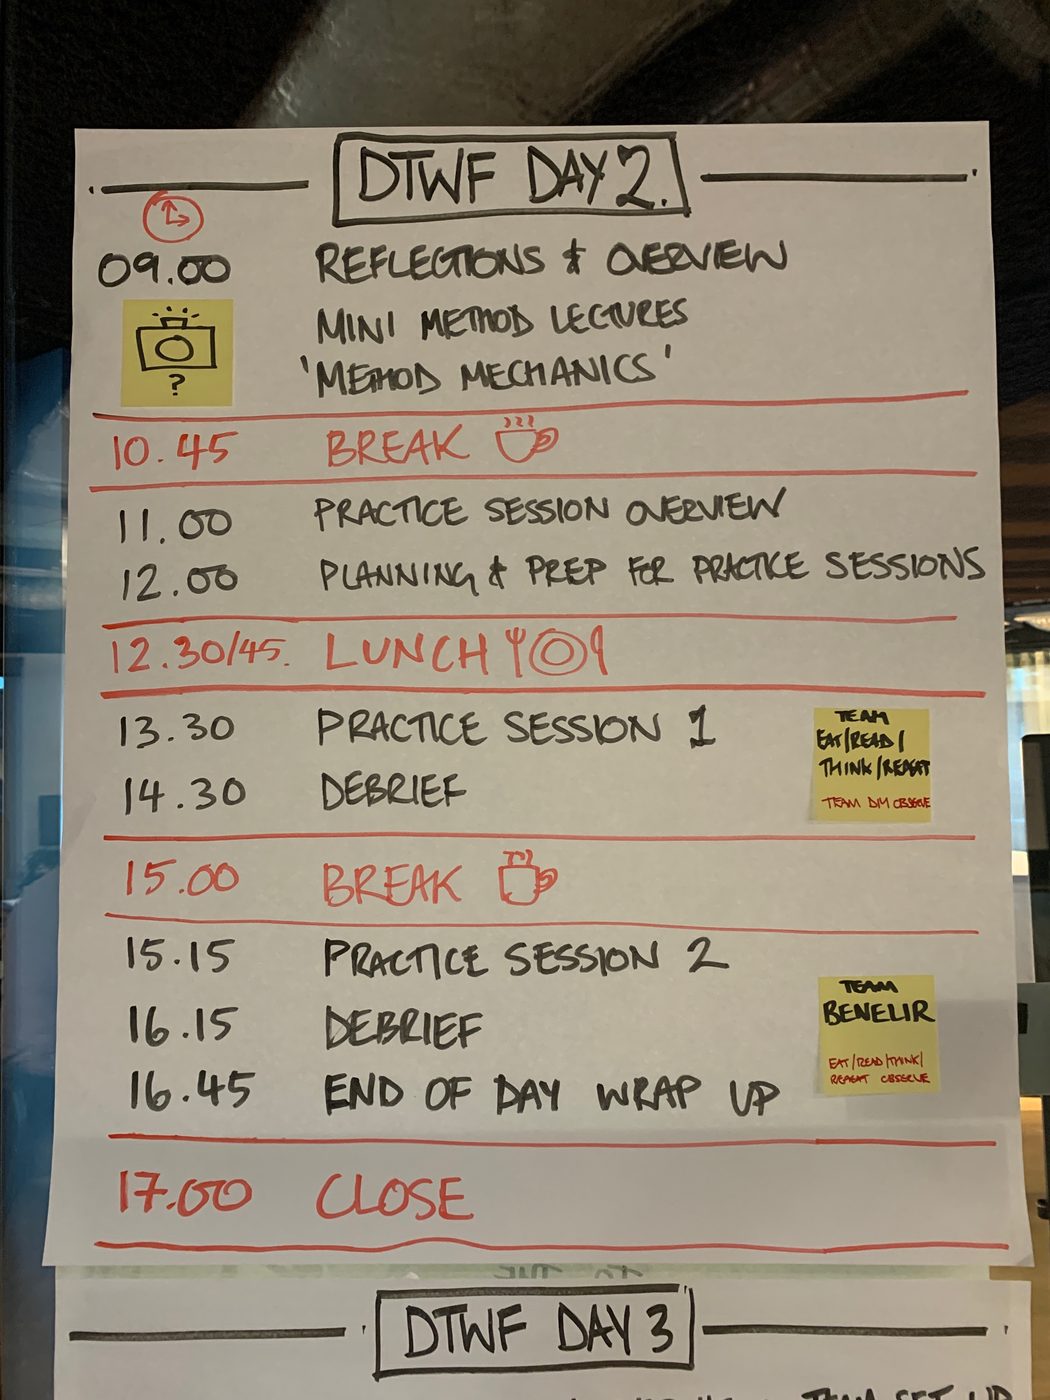 DTWF DAY 2.
09.00 REFLECTIONS & OVERVIEW
MINI METHOD LECTURES
'METHOD MECHANICS'
?
10.45 BREAK
11.00 PRACTICE SESSION OVERVIEW
12.00 PLANNING & PREP FOR PRACTICE SESSIONS
12.30/45. LUNCH
13.30 PRACTICE SESSION 1
14.30 DEBRIEF
TEAM
EAT/READ/
THINK/REPEAT
TEAM DIM OBSERVE
15.00 BREAK
15.15 PRACTICE SESSION 2
16.15 DEBRIEF
16.45 END OF DAY WRAP UP
TEAM
BENELIR
EAT/READ/THINK/
REPEAT OBSERVE
17.00 CLOSE
DTWF DAY 3
TEAM SET UP